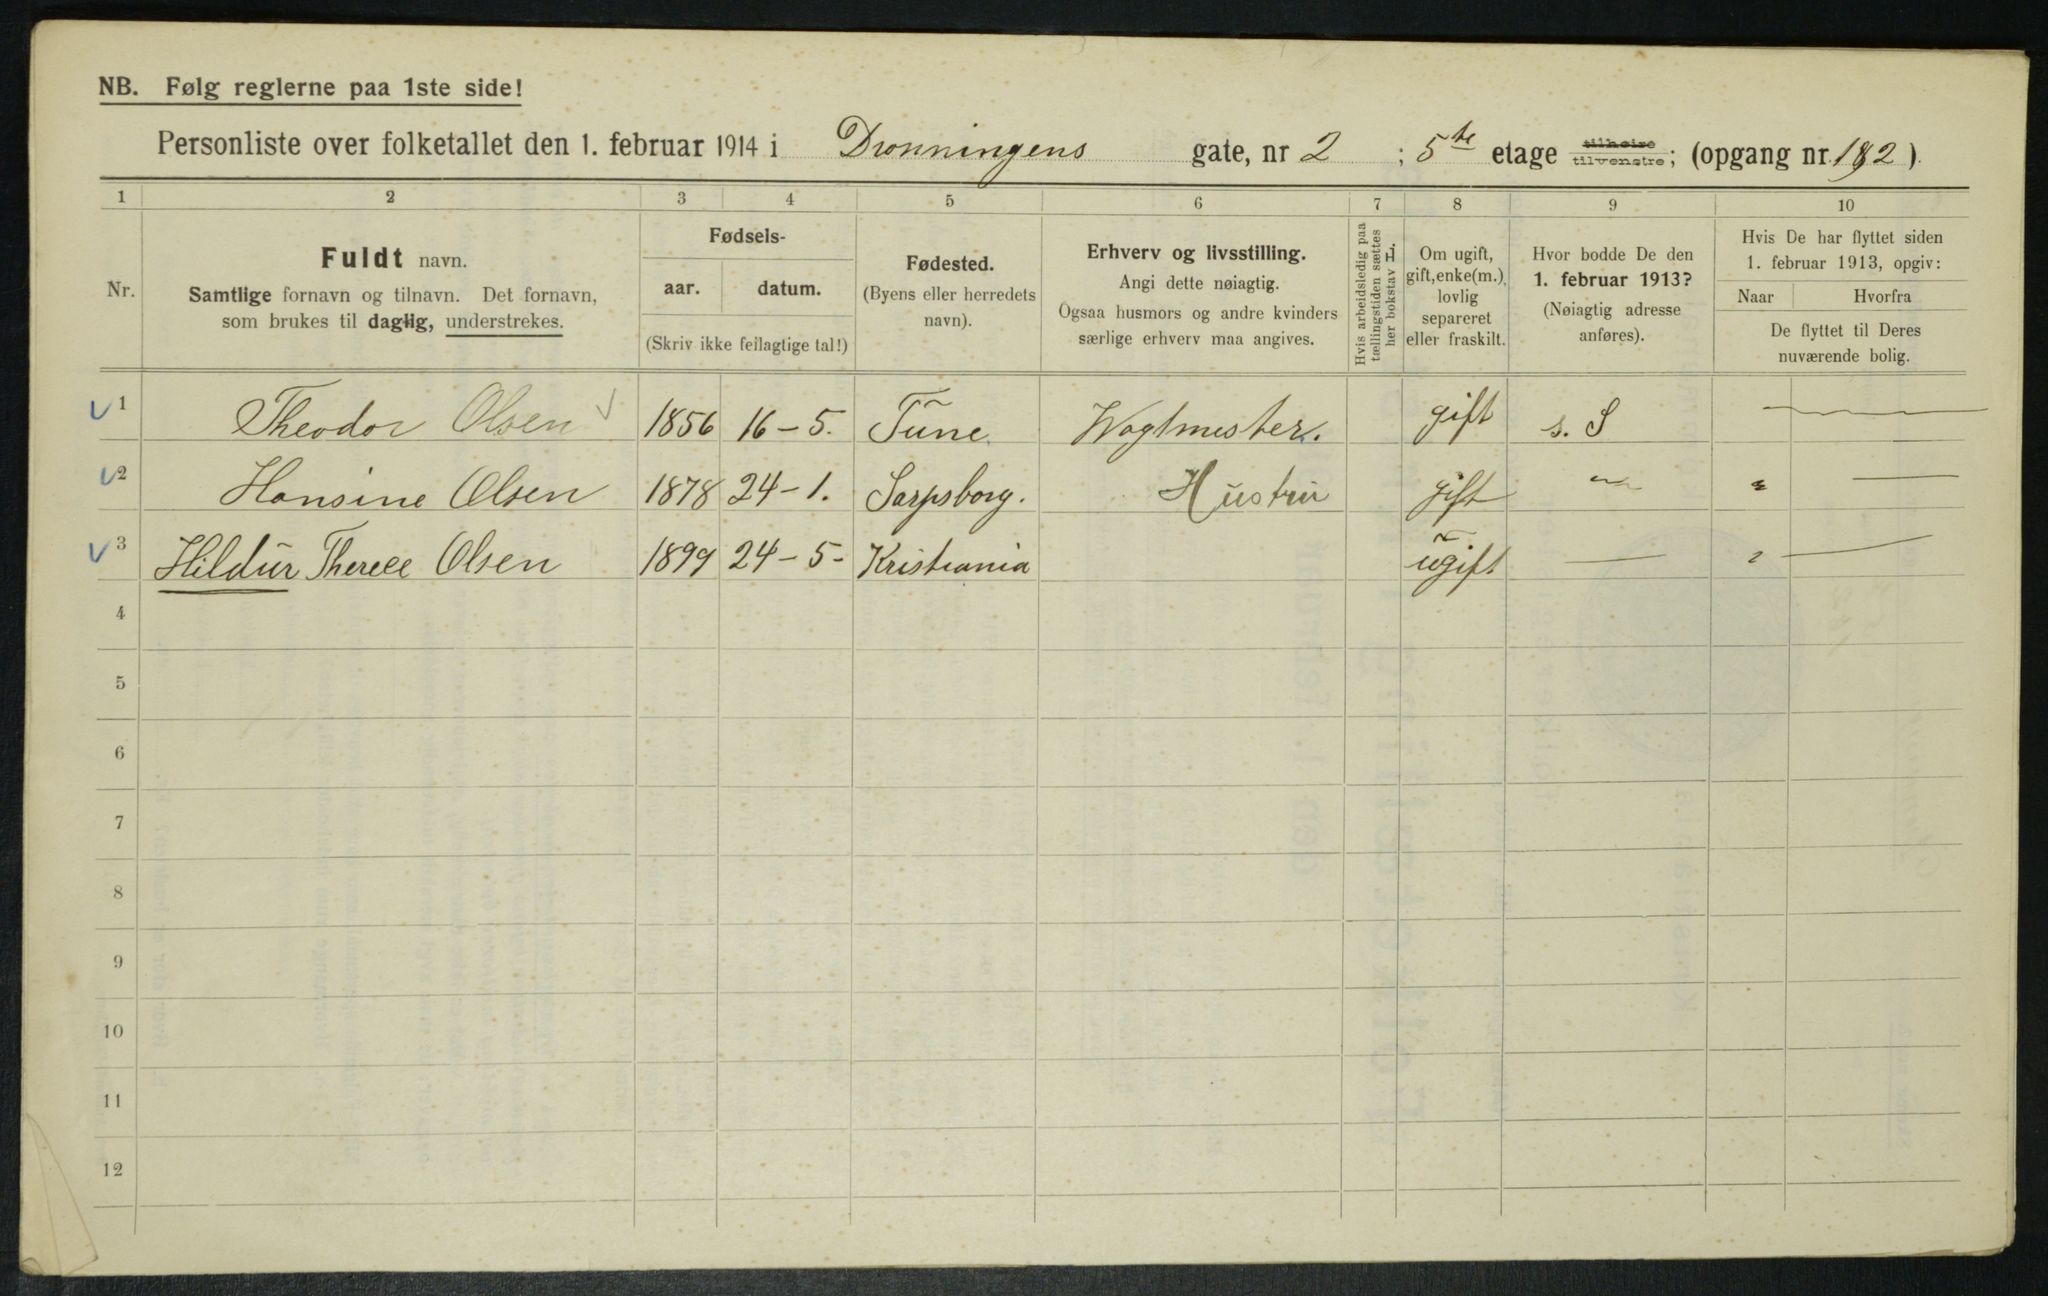 NB. Følg reglerne paa 1ste side!
Personliste over folketallet den 1. februar 1914 i Dronningens gate, nr 2 ; 5te etage tilhøire tilvenstre; (opgang nr. 1&2 ).
1 2 3 4 5 6 7 8 9 10
Nr.
Fuldt navn.
Samtlige fornavn og tilnavn. Det fornavn,
som brukes til daglig, understrekes.
Fødsels-
aar. datum.
(Skriv ikke feilagtige tal!)
Fødested.
(Byens eller herredets
navn).
Erhverv og livsstilling.
Angi dette nøiagtig.
Ogsaa husmors og andre kvinders
særlige erhverv maa angives.
Hvis arbeidsledig paa
tællingstiden sættes
her bokstav L.
Om ugift,
gift, enke(m.),
lovlig
separeret
eller fraskilt.
Hvor bodde De den
1. februar 1913?
(Nøiagtig adresse
anføres).
Hvis De har flyttet siden
1. februar 1913, opgiv:
Naar Hvorfra
De flyttet til Deres
nuværende bolig.
1 Theodor Olsen 1856 16-5. Tune Wagtmester. gift s. S
2 Hansine Olsen 1878 24-1. Sarpsborg. Hustru gift " "
3 Hildur Therese Olsen 1899 24-5- Kristiania ugift — "
4
5
6
7
8
9
10
11
12